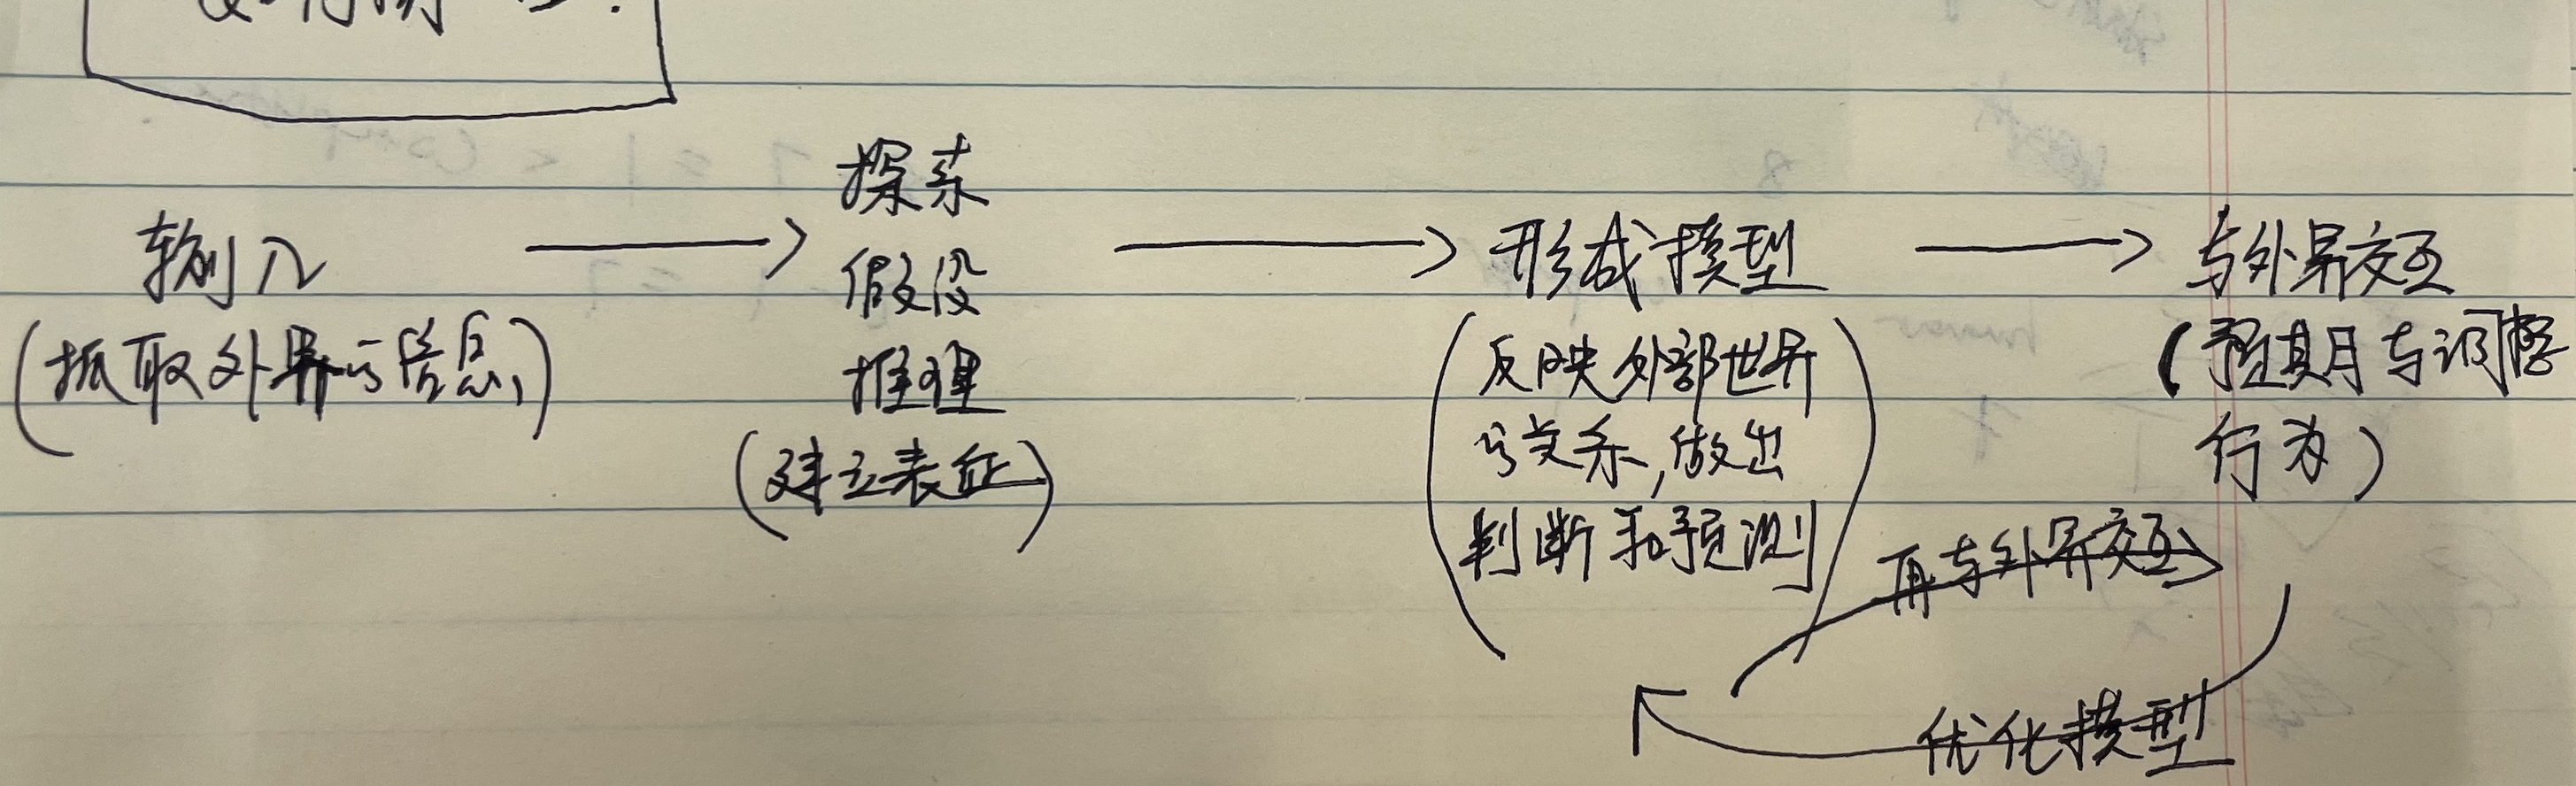 输入
(抓取外界的信息)
探索
假设
推理
(建立表征)
形成模型
(反映外部世界
的关系,做出
判断和预测)
与外界交互
(预期与调整
行为)
再与外界交互
优化模型